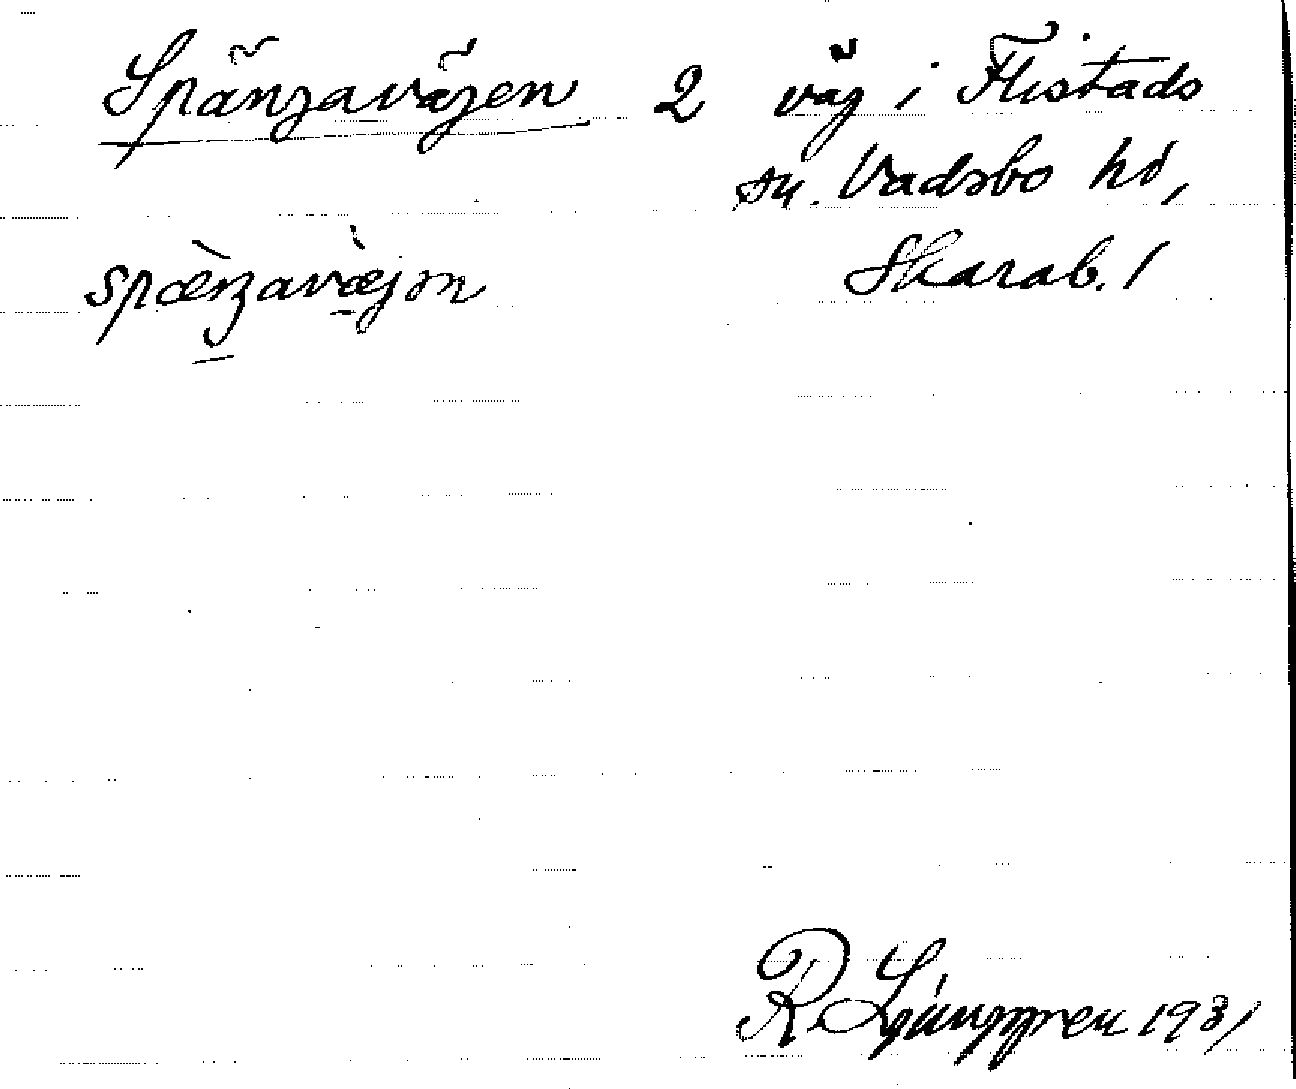 Spängavägen 2 väg i Flistads
sn. Vadsbo hd,
spænzavæjən Skarab. l
R. Ljunggren 1931